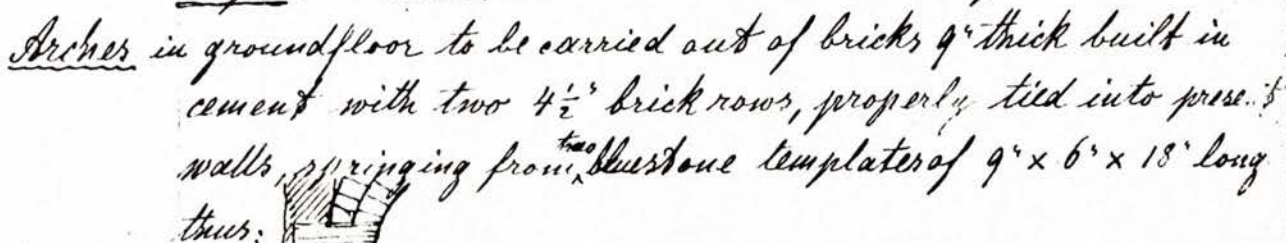 Arches in groundfloor to be carried out of bricks 9" thick built in
cement with two 4½" brick rows, properly tied into present
walls, springing from two bluestone templates of 9" x 6" x 18" long
thus: